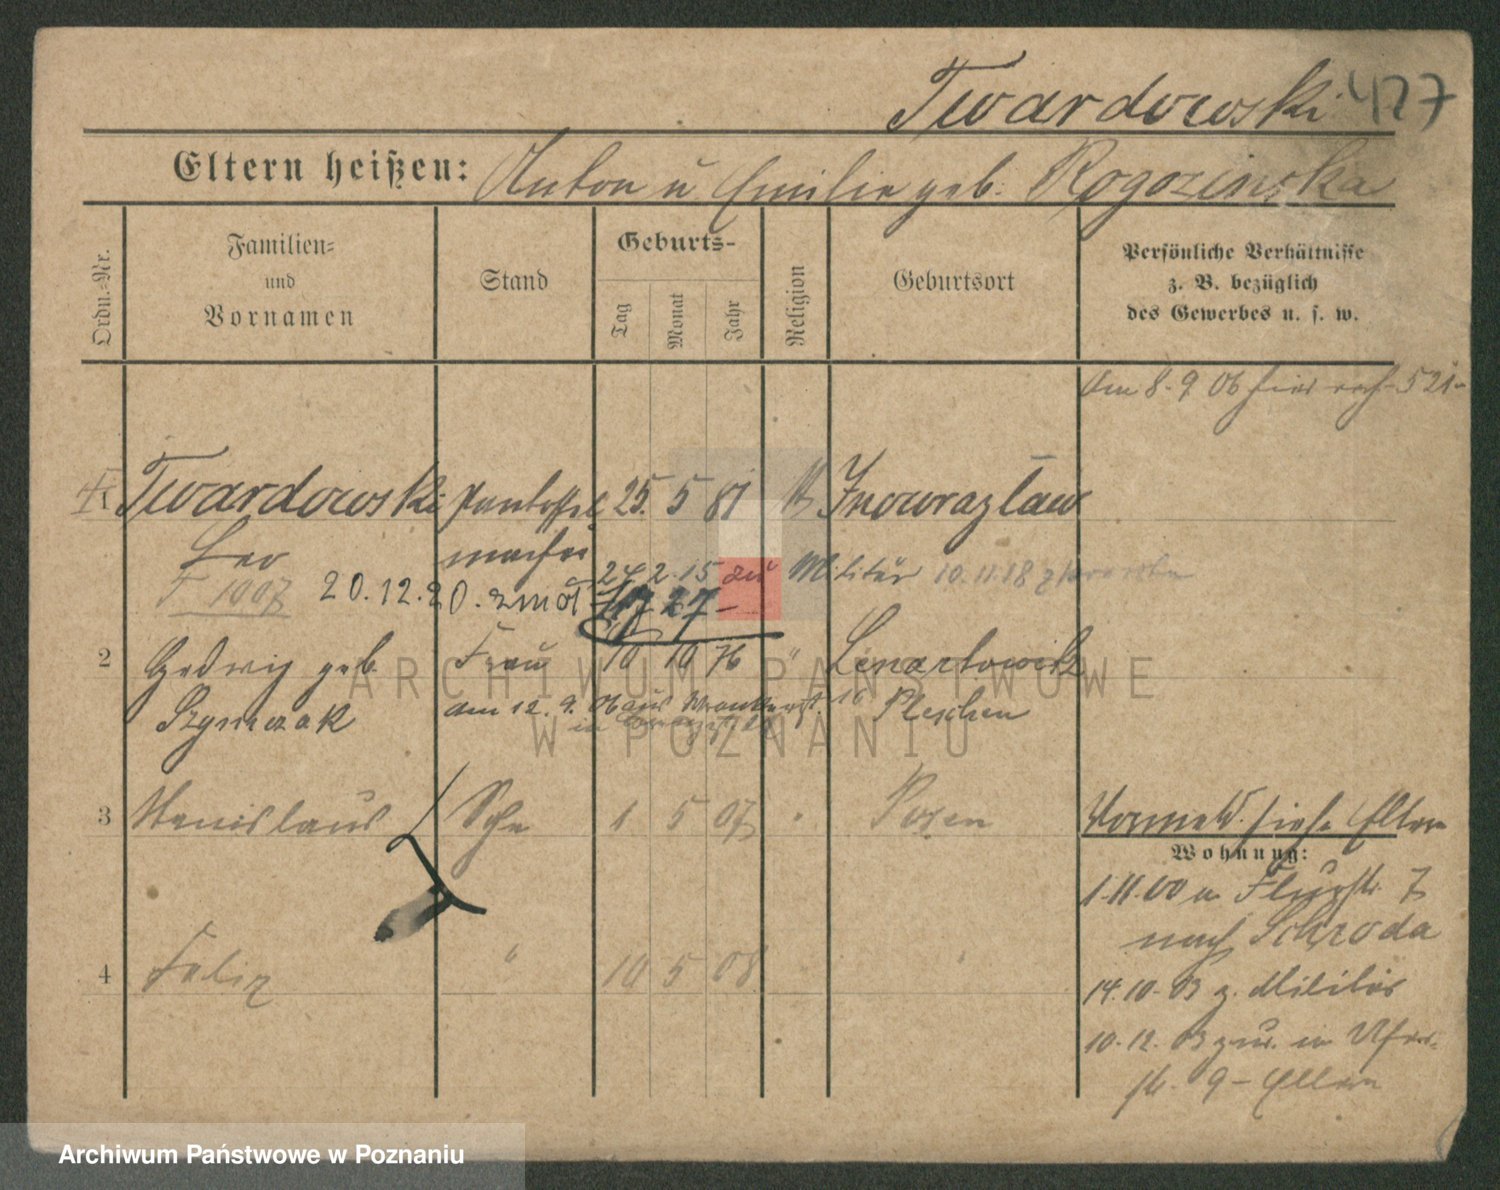 Twardowski 427
Eltern heißen: Anton u. Emilie geb. Rogozinska
Ordn.-Nr.
Familien-
und
Vornamen
Stand
Geburts-
Tag
Monat
Jahr
Religion
Geburtsort
Persönliche Verhältnisse
z. B. bezüglich
des Gewerbes u. s. w.
Am 8. 9. 06 hier 521
1 Twardowski Pantoffel 25. 5 81 Inowrazlaw
Leo macher
24 2. 15 zu Militär 10.11.18
1007 20.12.20. zmarł
2 Hedwig geb. Frau 10 10 76 " Lenartowitz
Szymczak am 12. 9. 06 aus Pleschen
3 Stanislaus Sohn 1 5 07 " Posen
siehe Eltern
Wohnung:
1.11.00 n. Flurstr. 7
nach Schroda
4 Felix " 10 5 08 "
14.10.03 z. Militär
10.12.03 zur. in
str. 9 - Eltern
ARCHIWUM PAŃSTWOWE
W POZNANIU
Archiwum Państwowe w Poznaniu